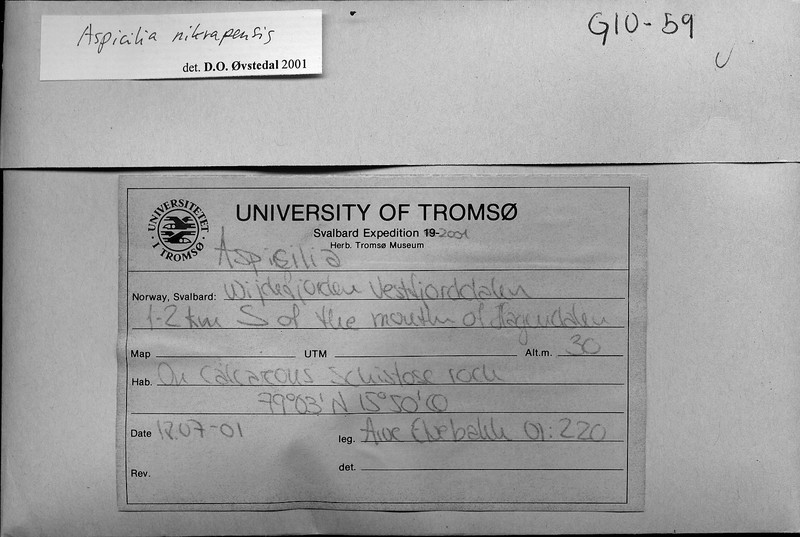 Aspicilia nikrapensis
det. D.O. Øvstedal 2001
G10-59
UNIVERSITETET I TROMSØ
UNIVERSITY OF TROMSØ
Svalbard Expedition 19-2001
Herb. Tromsø Museum
Aspicilia
Norway, Svalbard: Wijdefjorden Vestfjorddalen
1-2 km S of the mouth of
Map UTM Alt.m. 30
Hab. On calcareous schistose rock
79°03'N 15°50'
Date 18.07-01 leg. Arve Elvebakk 01:220
Rev. det.